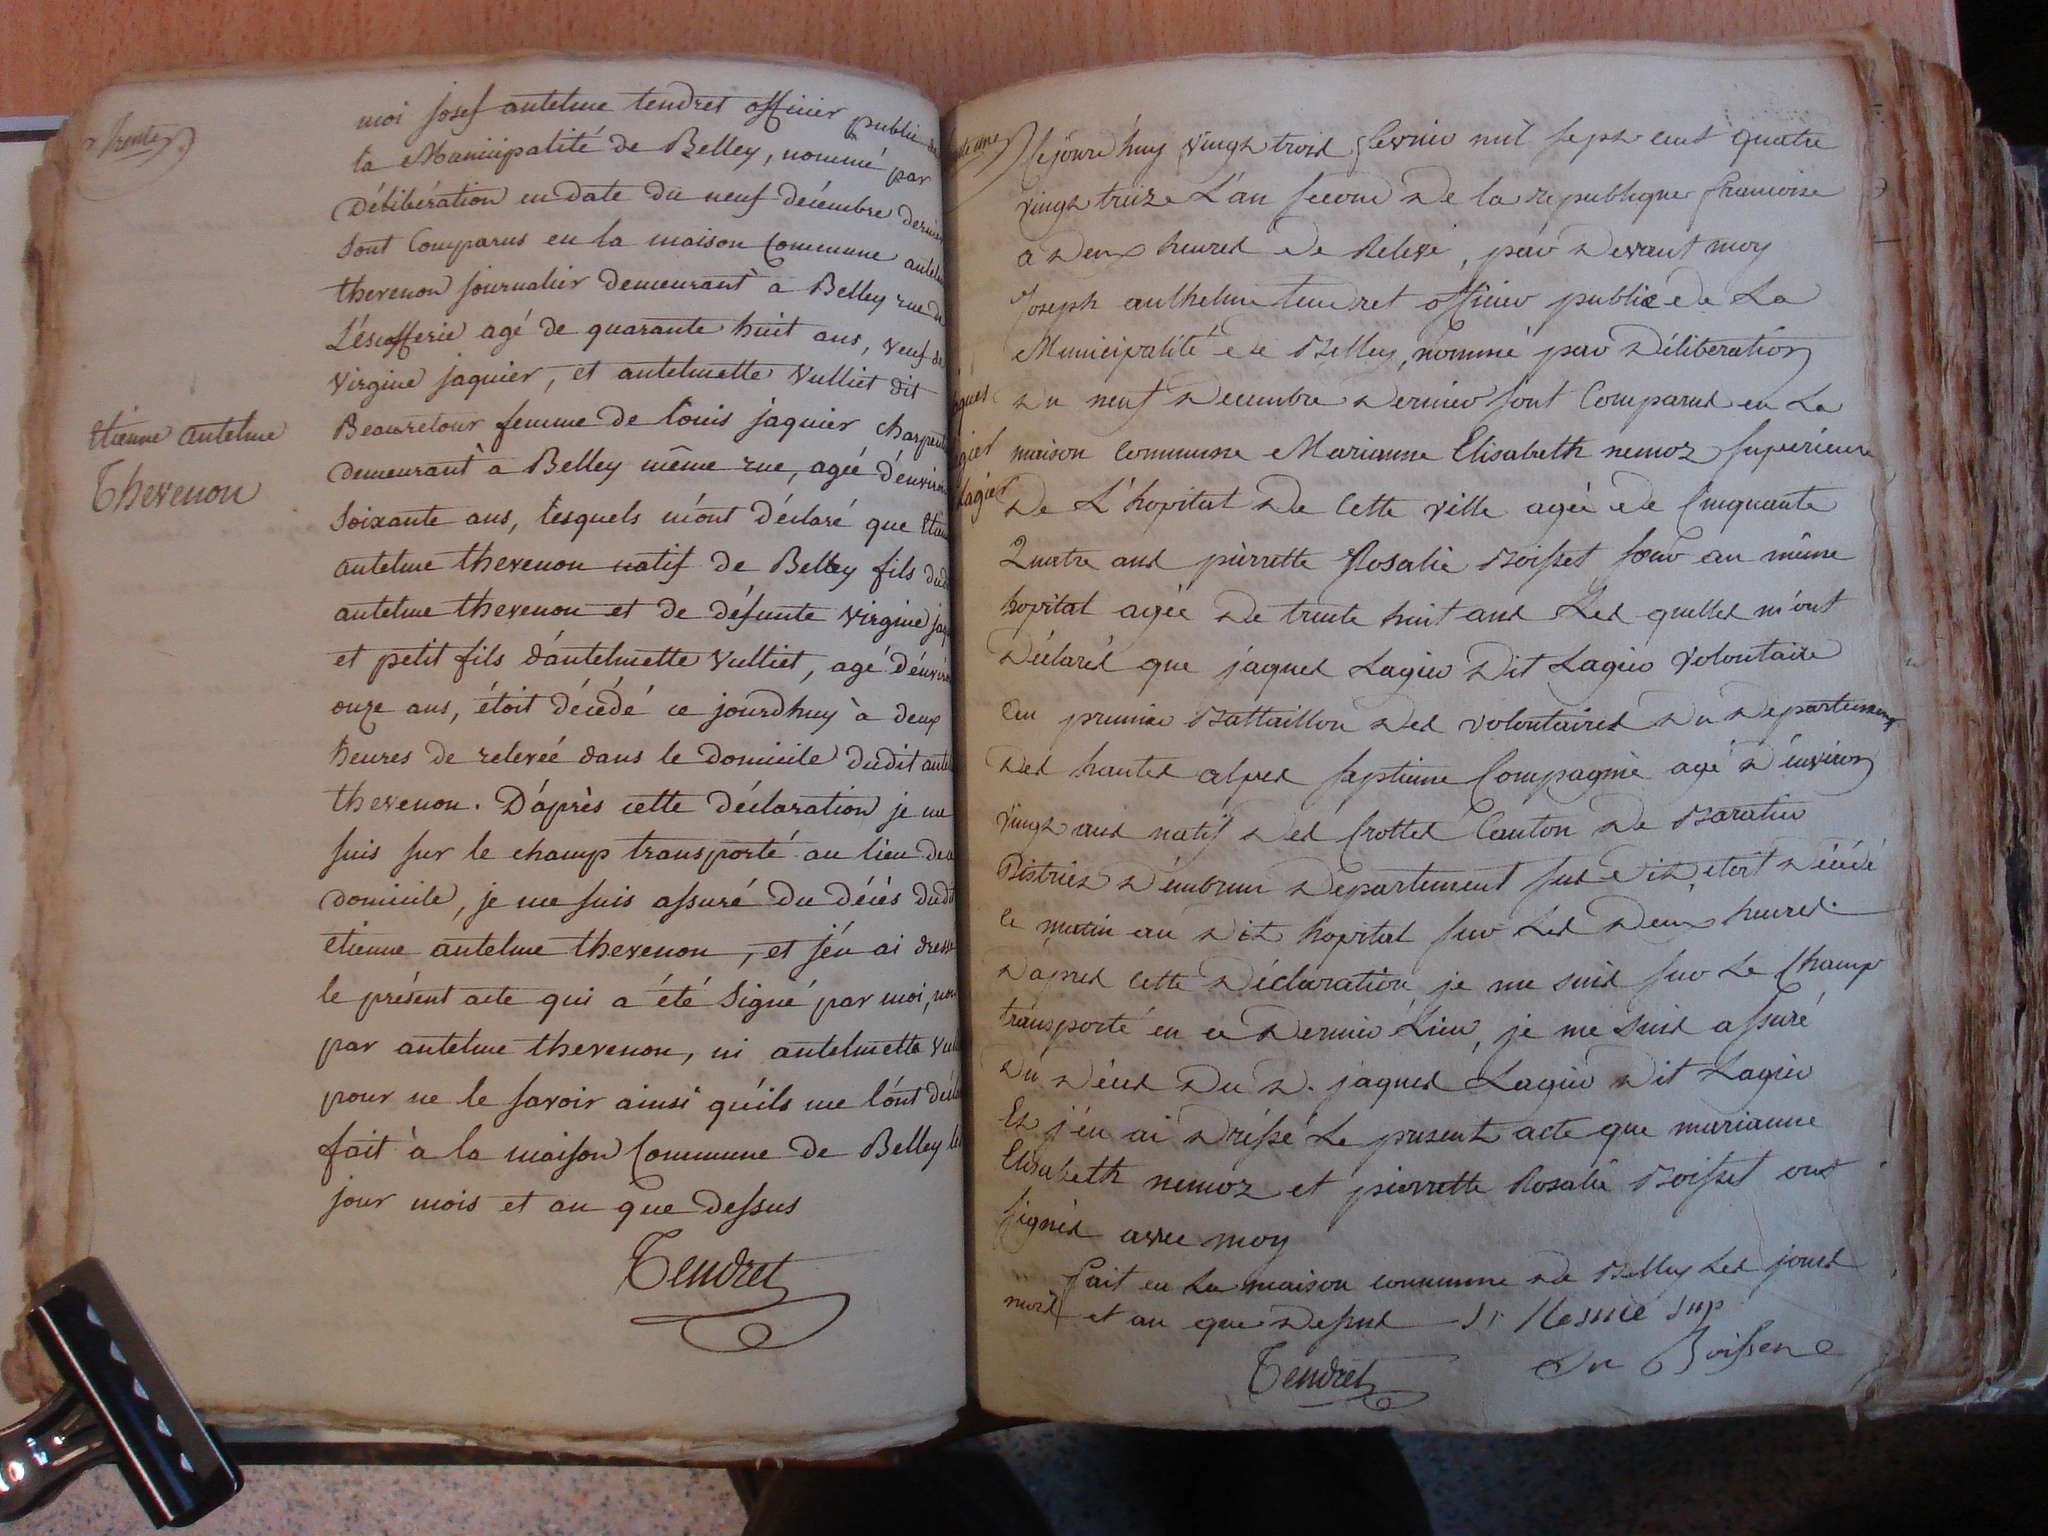 trente
moi josef antelme tendret officier public de
la Municipalité de Belley, nommé par
Délibération en date du neuf décembre dernier
sont Comparus en la maison Commune antelme
thevenon journalier demeurant à Belley rue de
L'éscofferie agé de quarante huit ans, veuf de
virgine jaquier, et antelmette Vulliet dit
Beauretour femme de louis jaquier charpent
demeurant à Belley même rue, agée d'énviron
Soixante ans, lesquels m'ont déclaré que Etien
antelme thevenon natif de Belley fils dud
antelme thevenon et de défunte virgine jaq
et petit fils d'antelmette Vulliet, agé d'énviro
onze ans, étoit décédé ce jourdhuy à deux
heures de relevée dans le domicile dudit antel
thevenon. D'après cette déclaration je me
suis sur le champ transporté au lieu de ce
domicile, je me suis assuré du décés dudt
etienne antelme thevenon, et j'én ai dressé
le présent acte qui a été Signé par moi, non
par antelme thevenon, ni antelmette Vull
pour ne le savoir ainsi qu'ils me l'ont décla
fait à la maison Commune de Belley le
jour mois et an que dessus
Tendret
Etienne antelme
Thevenon
te une
Cejourd'huy vingt trois fevrier mil sept cent quatre
vingt treize L'an second de la republique francoise
a deux heures de Relevé, par devant moy
Joseph anthelme tendret officier public de La
Municipalité de Belley, nommé par déliberation
du neuf decembre dernier sont Comparus en La
maison Commune Marianne Elisabeth nemoz superieure
De L'hopital de Cette ville agée de Cinquante
Quatre ans pierrette Rosalie Boisset soeur au même
hopital agée de trente huit ans Les quelles m'ont
Déclarés que jaques Lagier dit Lagier volontaire
au premier Battaillon des volontaires du Departement
des hautes alpes septieme Compagnie agé d'environ
vingt ans natif des Crottes Canton de Baratier
District d'émbrun departement sus dit, étoit décédé
ce matin au dit hopital sur Les deux heures.
D'apres cette déclaration je me suis sur Le Champ
transporté en ce dernier Lieu, je me suis assuré
du déces du d. jaques Lagier dit Lagier
Et j'én ai dréssé Le present acte que marianne
Elisabeth nemoz et pierrette Rosalie Boisset ont
signés avec moy
fait en La maison commune de Belley Les jours
mois et an que dessus Sr Nesme sup
Tendret Sr Boissene